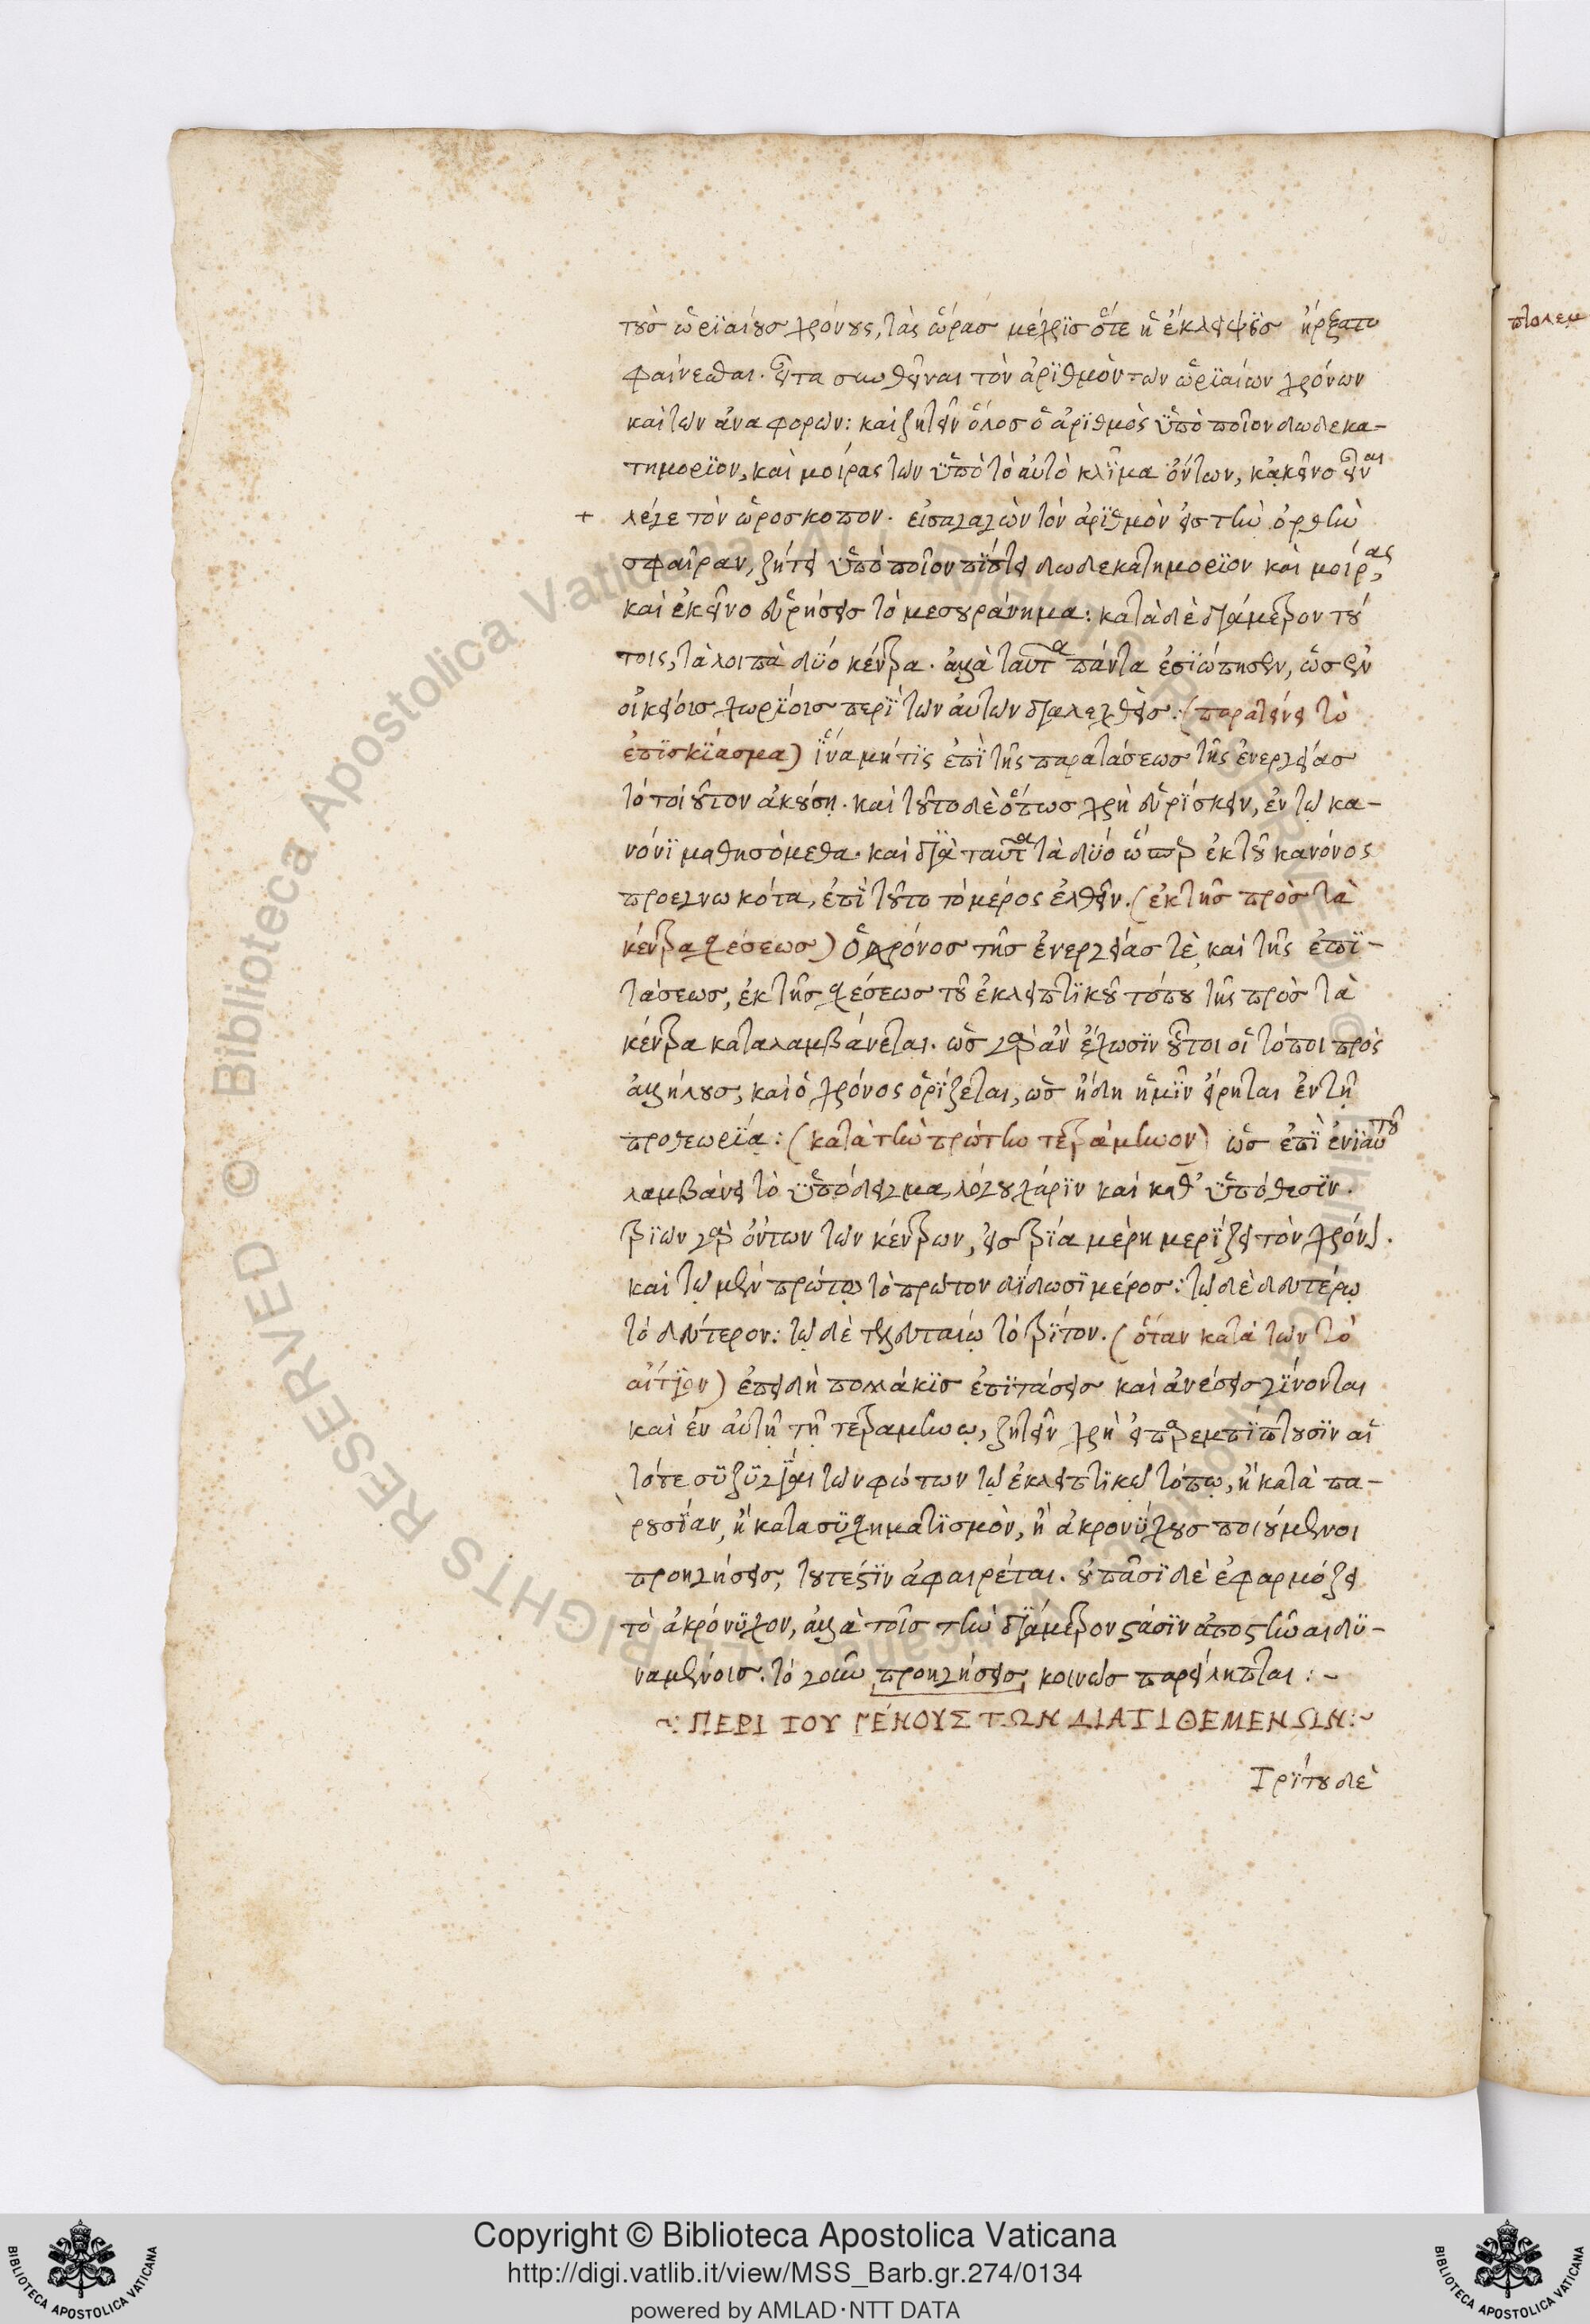 τοὺς ὡριαίους χρόνους, τὰς ὥρας μέχρις ὅτε ἡ ἔκλειψις ἤρξατο
φαίνεσθαι. εἶτα συνθεῖναι τὸν ἀριθμὸν τῶν ὡριαίων χρόνων
καὶ τῶν ἀναφορῶν: καὶ ζητεῖν ὅλος ὁ ἀριθμὸς ὑπὸ ποῖον δωδεκα-
τημόριον, καὶ μοίρας τῶν ὑπὸ τὸ αὐτὸ κλῖμα ὄντων, κἀκεῖνο εἶναι
+ λέγε τὸν ὡροσκόπον. εἰσαγαγὼν τὸν ἀριθμὸν εἰς τὴν ὀρθὴν
σφαῖραν, ζήτει ὑπὸ ποῖον πίπτει δωδεκατημόριον καὶ μοίρας,
καὶ ἐκεῖνο εὑρήσεις τὸ μεσουράνημα: κατὰ δὲ διάμετρον τού
τοις, τὰ λοιπὰ δύο κέντρα. ἀλλὰ ταῦτα πάντα ἐσιώπησεν, ὡς ἐν
οἰκείοις χωρίοις περὶ τῶν αὐτῶν διαλεχθείς: (παρατείνει τὸ
ἐπισκίασμα) ἵνα μή τις ἐπὶ τῆς παρατάσεως τῆς ἐνεργείας
τὸ τοιοῦτον ἀκούσῃ. καὶ τοῦτο δὲ ὅπως χρὴ εὑρίσκειν, ἐν τῷ κα-
νόνι μαθησόμεθα. καὶ διὰ ταῦτα τὰ δύο ὥσπερ ἐκ τοῦ κανόνος
προεγνωκότα, ἐπὶ τοῦτο τὸ μέρος ἐλθεῖν. (ἐκ τῆς πρὸς τὰ
κέντρα σχέσεως) ὁ χρόνος τῆς ἐνεργείας τὲ καὶ τῆς ἐπι-
τάσεως, ἐκ τῆς σχέσεως τοῦ ἐκλειπτικοῦ τόπου τῆς πρὸς τὰ
κέντρα καταλαμβάνεται. ὡς γὰρ ἂν ἔχωσιν οὗτοι οἱ τόποι πρὸς
ἀλλήλους, καὶ ὁ χρόνος ὁρίζεται, ὡς ἤδη ἡμῖν εἴρηται ἐν τῇ
προθεωρίᾳ: (κατὰ τὴν πρώτην τετράμηνον) ὡς ἐπὶ ἐνιαυτοῦ
λαμβάνει τὸ ὑπόδειγμα, λόγου χάριν καὶ καθ' ὑπόθεσιν.
τριῶν γὰρ ὄντων τῶν κέντρων, εἰς τρία μέρη μερίζει τὸν χρόνον.
καὶ τῷ μὲν πρώτῳ τὸ πρῶτον δίδωσι μέρος: τῷ δὲ δευτέρῳ
τὸ δεύτερον: τῷ δὲ τελευταίῳ τὸ τρίτον. (ὅταν κατὰ τῶν τὸ
αἴτιον) ἐπειδὴ πολλάκις ἐπιτάσεις καὶ ἀνέσεις γίνονται
καὶ ἐν αὐτῇ τῇ τετραμήνῳ, ζητεῖν χρὴ εἰ παρεμπίπτουσιν αἱ
τότε συζυγίαι τῶν φώτων τῷ ἐκλειπτικῷ τόπῳ, ἢ κατὰ πα-
ρουσίαν, ἢ κατὰ συσχηματισμὸν, ἢ ἀκρονύχους ποιούμενοι
προηγήσεις, τουτέστιν ἀφαιρέται. οὐ πᾶσι δὲ ἐφαρμόζει
τὸ ἀκρόνυχον, ἀλλὰ τοῖς τὴν διάμετρον στάσιν ἀποστῆναι δυ-
ναμένοις. τὸ γοῦν προηγήσεις κοινῶς παρείληπται: ~
~: ΠΕΡΙ ΤΟΥ ΓΈΝΟΥΣ ΤΩΝ ΔΙΑΤΙΘΕΜΕΝΩΝ: ~
Τρίτου δὲ
πτολεμ
© Biblioteca Apostolica Vaticana ALL RIGHTS RESERVED
Copyright © Biblioteca Apostolica Vaticana
http://digi.vatlib.it/view/MSS_Barb.gr.274/0134
powered by AMLAD·NTT DATA
BIBLIOTECA APOSTOLICA VATICANA
BIBLIOTECA APOSTOLICA VATICANA